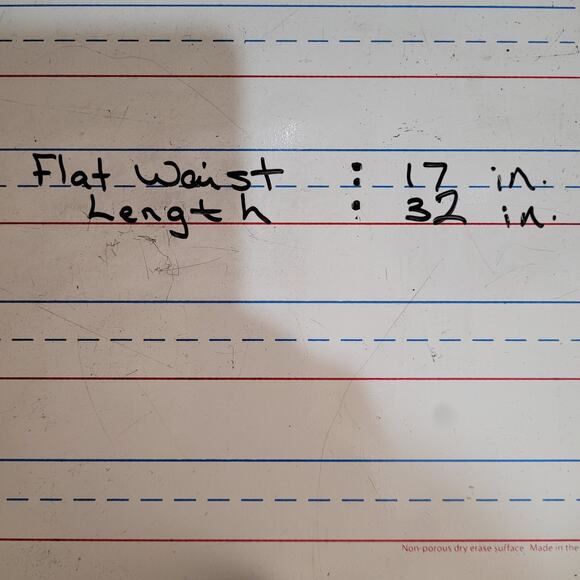 Flat Waist : 17 in.
Length : 32 in.
Non-porous dry erase surface. Made in the